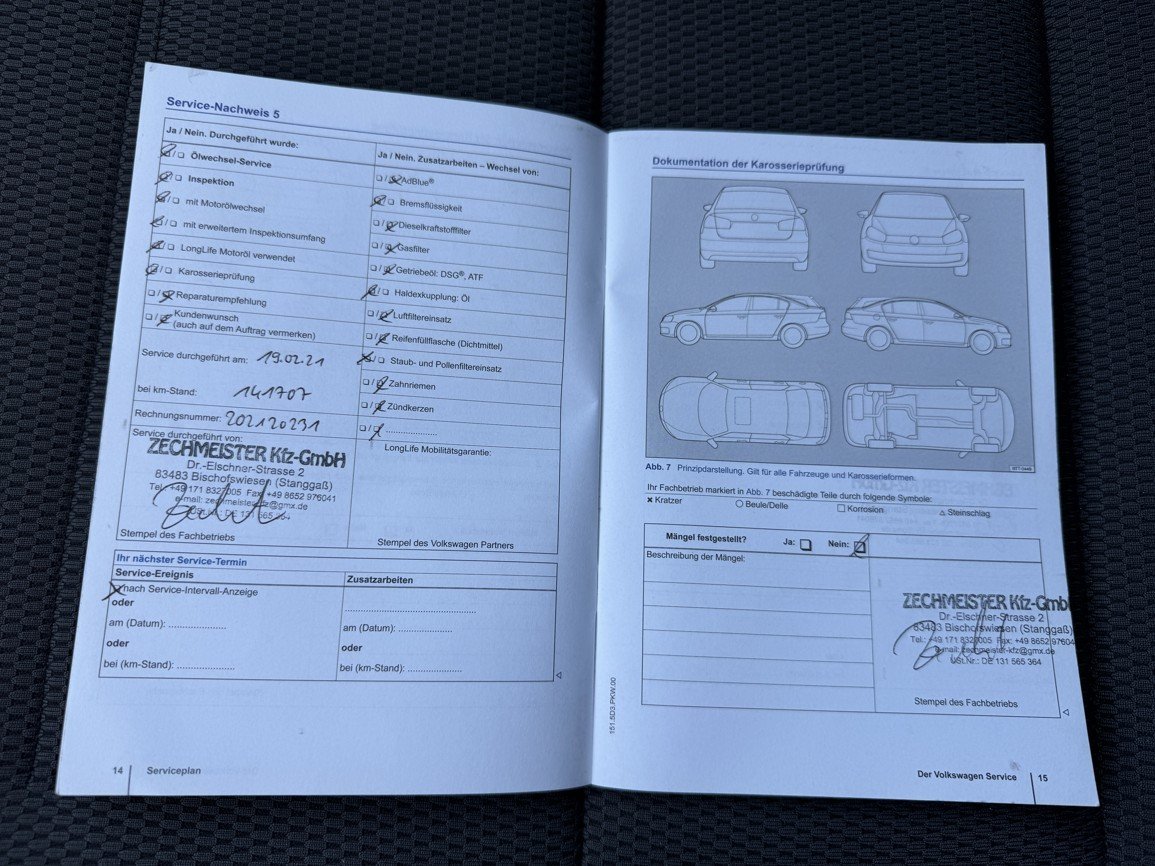 Service-Nachweis 5
Ja / Nein. Durchgeführt wurde:
Ölwechsel-Service
Inspektion
mit Motorölwechsel
mit erweitertem Inspektionsumfang
LongLife Motoröl verwendet
Karosserieprüfung
Reparaturempfehlung
Kundenwunsch
(auch auf dem Auftrag vermerken)
Service durchgeführt am: 19.02.21
bei km-Stand: 141707
Rechnungsnummer: 202120231
Service durchgeführt von:
ZECHMEISTER Kfz-GmbH
Dr.-Elschner-Strasse 2
83483 Bischofswiesen (Stanggaß)
Tel.: +49 171 8327005 Fax: +49 8652 976041
e-mail: zechmeister-kfz@gmx.de
USt.Nr.: DE 131 565 364
Stempel des Fachbetriebs
Ja / Nein. Zusatzarbeiten – Wechsel von:
AdBlue®
Bremsflüssigkeit
Dieselkraftstofffilter
Gasfilter
Getriebeöl: DSG®, ATF
Haldexkupplung: Öl
Luftfiltereinsatz
Reifenfüllflasche (Dichtmittel)
Staub- und Pollenfiltereinsatz
Zahnriemen
Zündkerzen
LongLife Mobilitätsgarantie:
Stempel des Volkswagen Partners
Ihr nächster Service-Termin
Service-Ereignis
nach Service-Intervall-Anzeige
oder
am (Datum): ....................
oder
bei (km-Stand): ....................
Zusatzarbeiten
am (Datum): ....................
oder
bei (km-Stand): ....................
14 Serviceplan
Dokumentation der Karosserieprüfung
Abb. 7 Prinzipdarstellung. Gilt für alle Fahrzeuge und Karosserieformen.
Ihr Fachbetrieb markiert in Abb. 7 beschädigte Teile durch folgende Symbole:
✖ Kratzer ○ Beule/Delle □ Korrosion △ Steinschlag
Mängel festgestellt? Ja: Nein:
Beschreibung der Mängel:
ZECHMEISTER Kfz-GmbH
Dr.-Elschner-Strasse 2
83483 Bischofswiesen (Stanggaß)
Tel.: +49 171 8327005 Fax: +49 8652 97604
e-mail: zechmeister-kfz@gmx.de
USt.Nr.: DE 131 565 364
Stempel des Fachbetriebs
151.5D3.PKW.00
Der Volkswagen Service 15